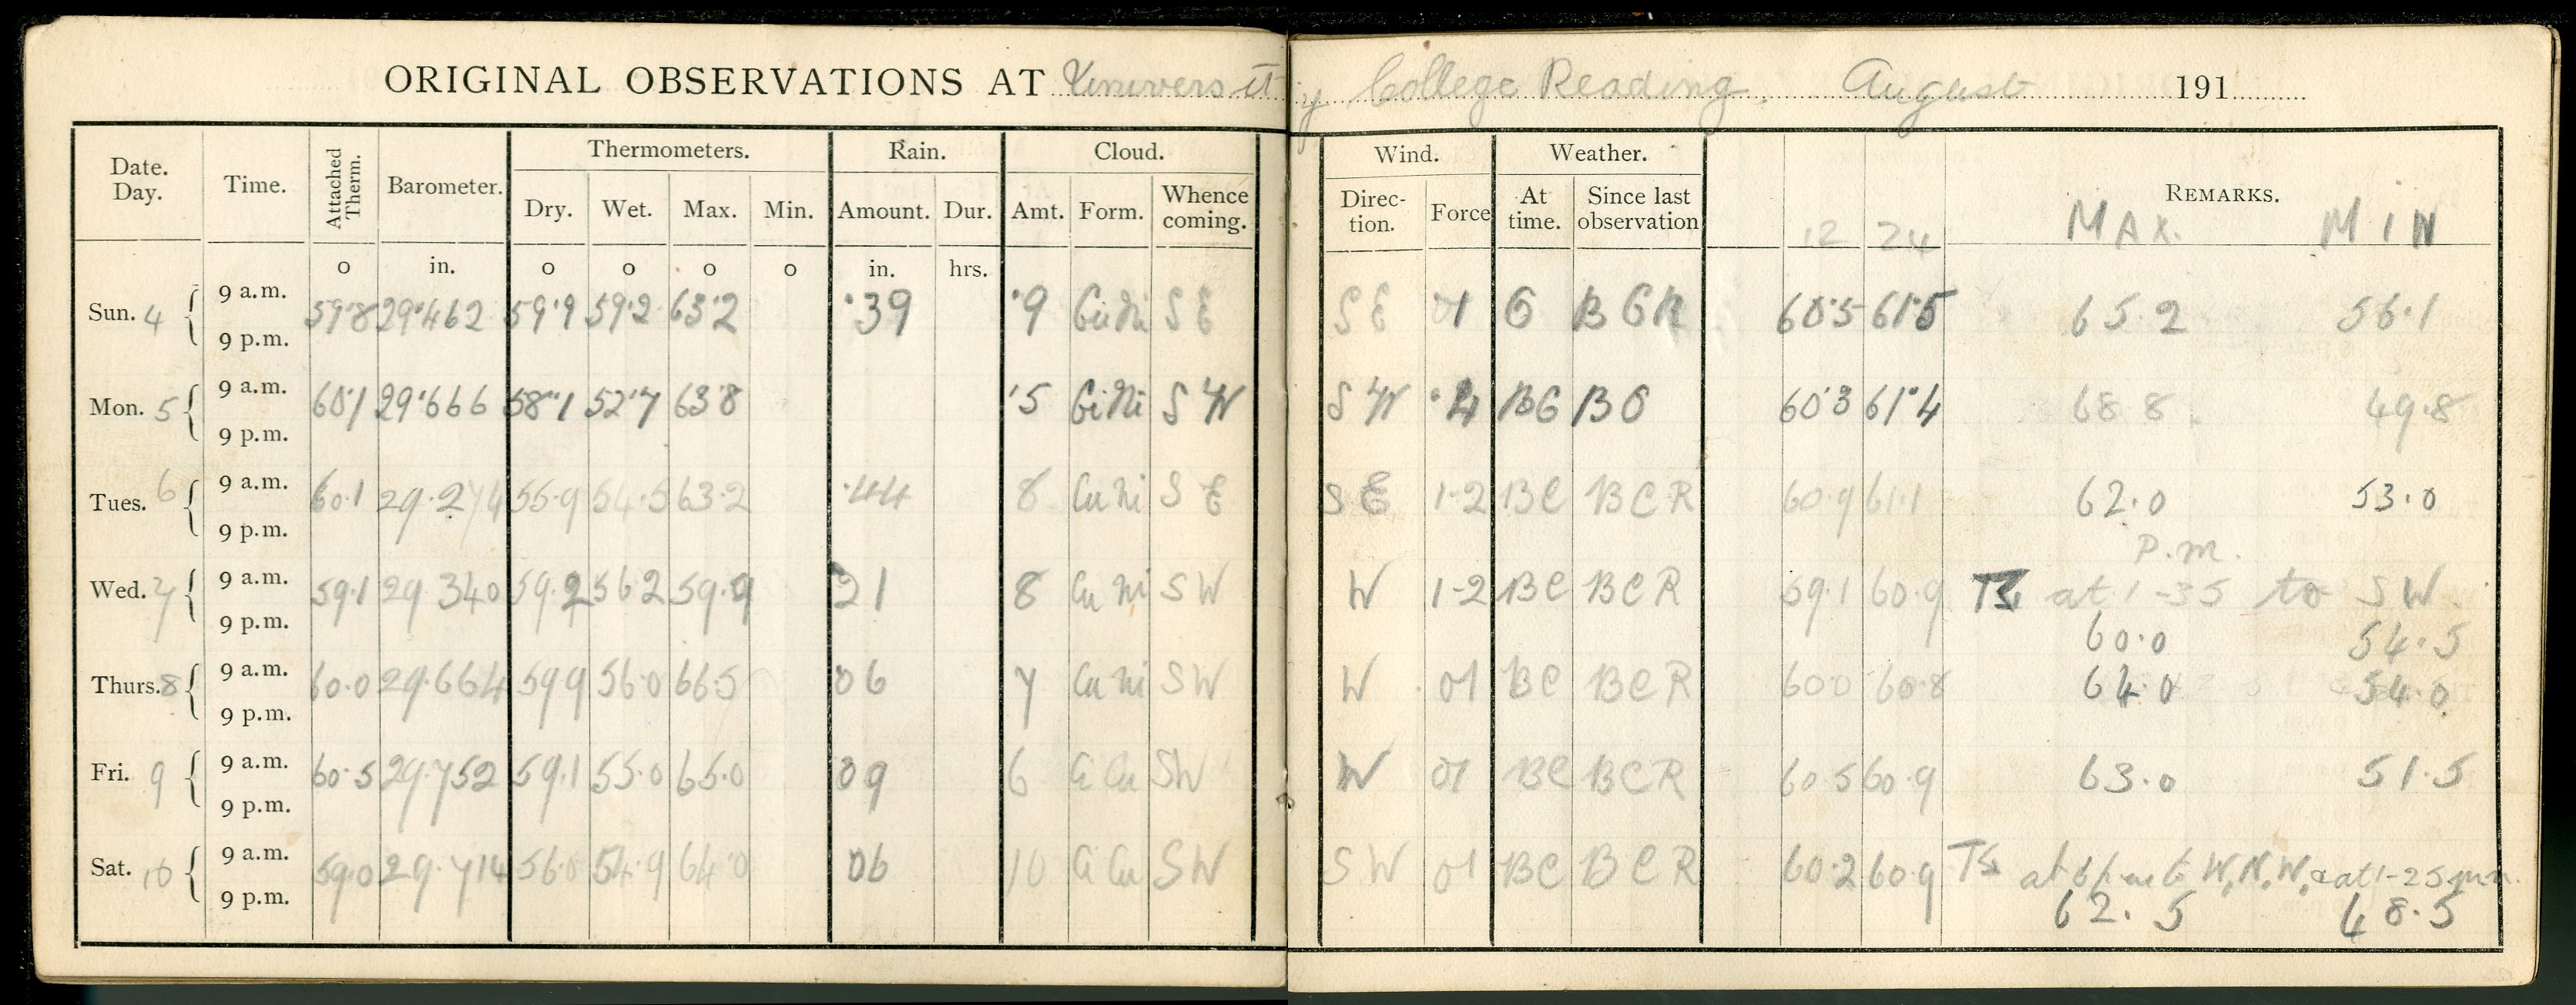 ORIGINAL OBSERVATIONS AT University College Reading. August 191
Date. Day. Time. Attached Therm. Barometer. Thermometers. Rain. Cloud. Wind. Weather. REMARKS.
Dry. Wet. Max. Min. Amount. Dur. Amt. Form. Whence coming. Direc- tion. Force At time. Since last observation 12 24 MAX. MIN
o in. o o o o in. hrs.
Sun. 4 9 a.m. 59.8 29.462 59.9 59.2 63.2 .39 .9 Cu Ni S E S E 01 C B C R 60.5 61.5 65.2 56.1
9 p.m.
Mon. 5 9 a.m. 60.1 29.666 58.1 52.7 63.8 .5 Ci Ni S W S W .4 BC B C 60.3 61.4 68.8 49.8
9 p.m.
Tues. 6 9 a.m. 60.1 29.274 55.9 54.5 63.2 .44 8 Cu Ni S E S E 1-2 BC BCR 60.9 61.1 62.0 53.0
9 p.m.
P.m.
Wed. 7 9 a.m. 59.1 29 340 59.2 56.2 59.9 21 8 Cu Ni SW W 1-2 BC BCR 59.1 60.9 at 1-35 to SW.
9 p.m. 60.0 54.5
Thurs. 8 9 a.m. 60.0 29.664 59 9 56.0 66.5 06 7 Cu Ni SW W 01 BC BCR 60 0 60.8 64.0 54.0
9 p.m.
Fri. 9 9 a.m. 60.5 29.752 59.1 55.0 65.0 09 6 Ci Cu SW W 01 BC BCR 60 5 60.9 63.0 51.5
9 p.m.
Sat. 10 9 a.m. 59.0 29.714 56.0 54.9 64.0 06 10 Ci Cu SW SW 01 BC BCR 60.2 60.9 at W.N.W. at 1-25
9 p.m. 62.5 48.5